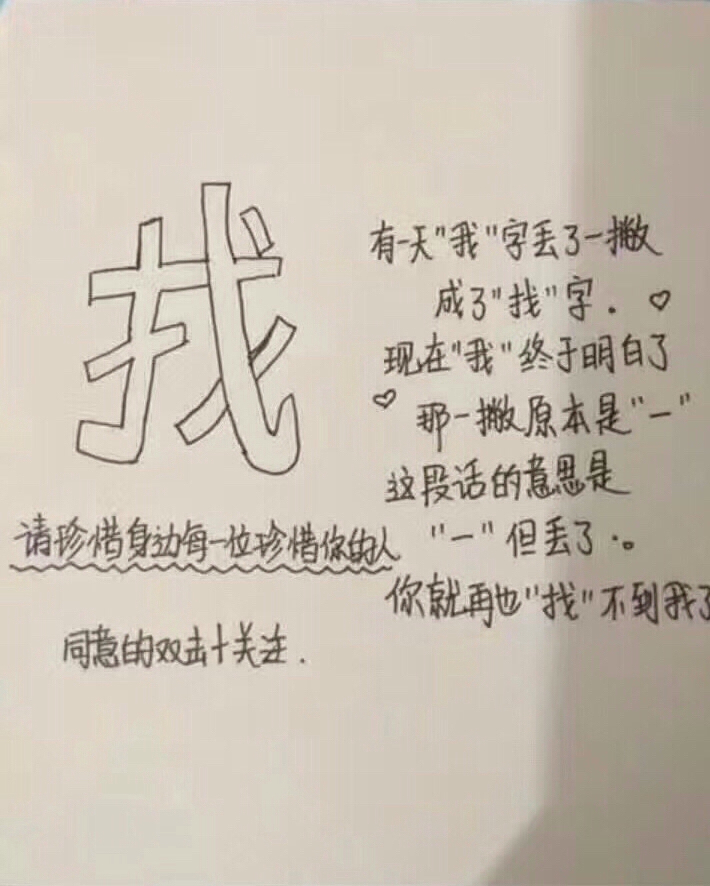 找
有一天"我"字丢了一撇
成了"找"字.
现在"我"终于明白了
那一撇原本是"一"
这段话的意思是
"一"但丢了·。
你就再也"找"不到我了
请珍惜身边每一位珍惜你的人
同意的双击+关注.